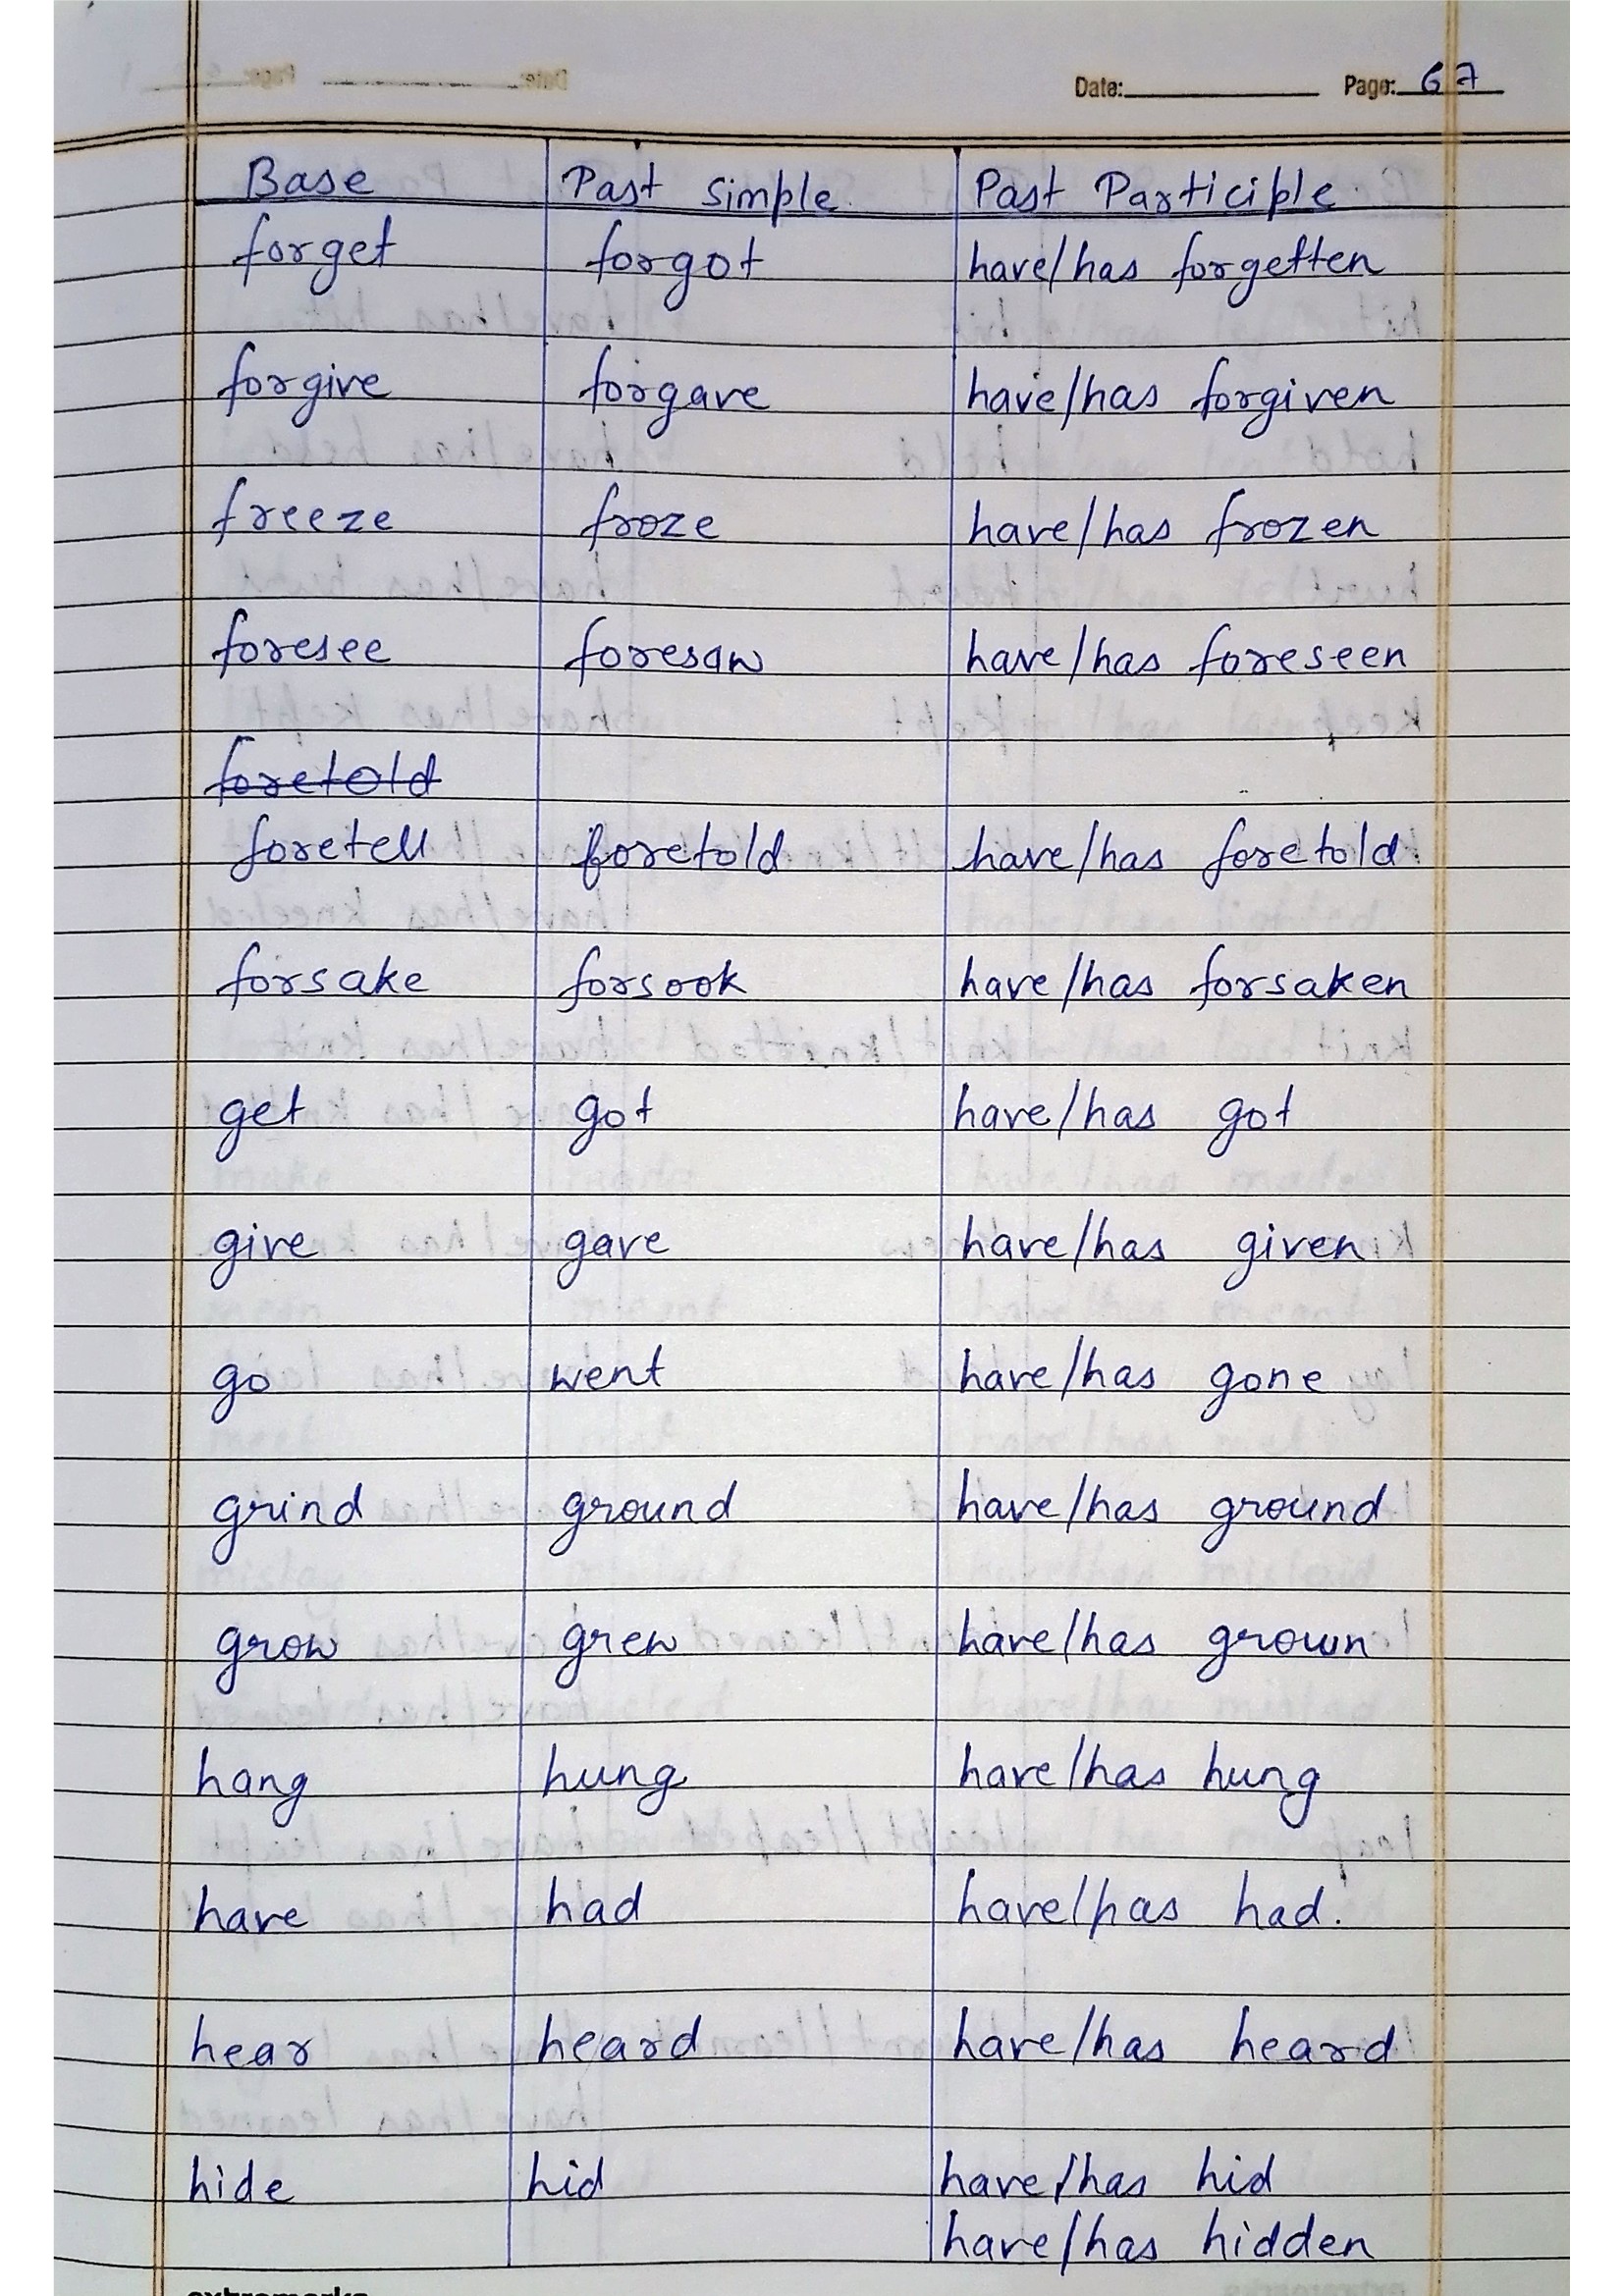 Date: Page: 67
Base Past simple Past Participle
forget forgot have/has forgetten
forgive forgave have/has forgiven
freeze froze have/has frozen
foresee foresaw have/has foreseen
foretold
foretell foretold have/has foretold
forsake forsook have/has forsaken
get got have/has got
give gave have/has given
go went have/has gone
grind ground have/has ground
grow grew have/has grown
hang hung have/has hung
have had have/has had.
hear heard have/has heard
hide hid have/has hid
have/has hidden
extramarks